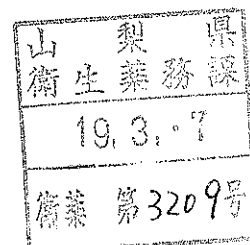 山梨県
衛生薬務課
19.3.-7
衛薬 第3209号